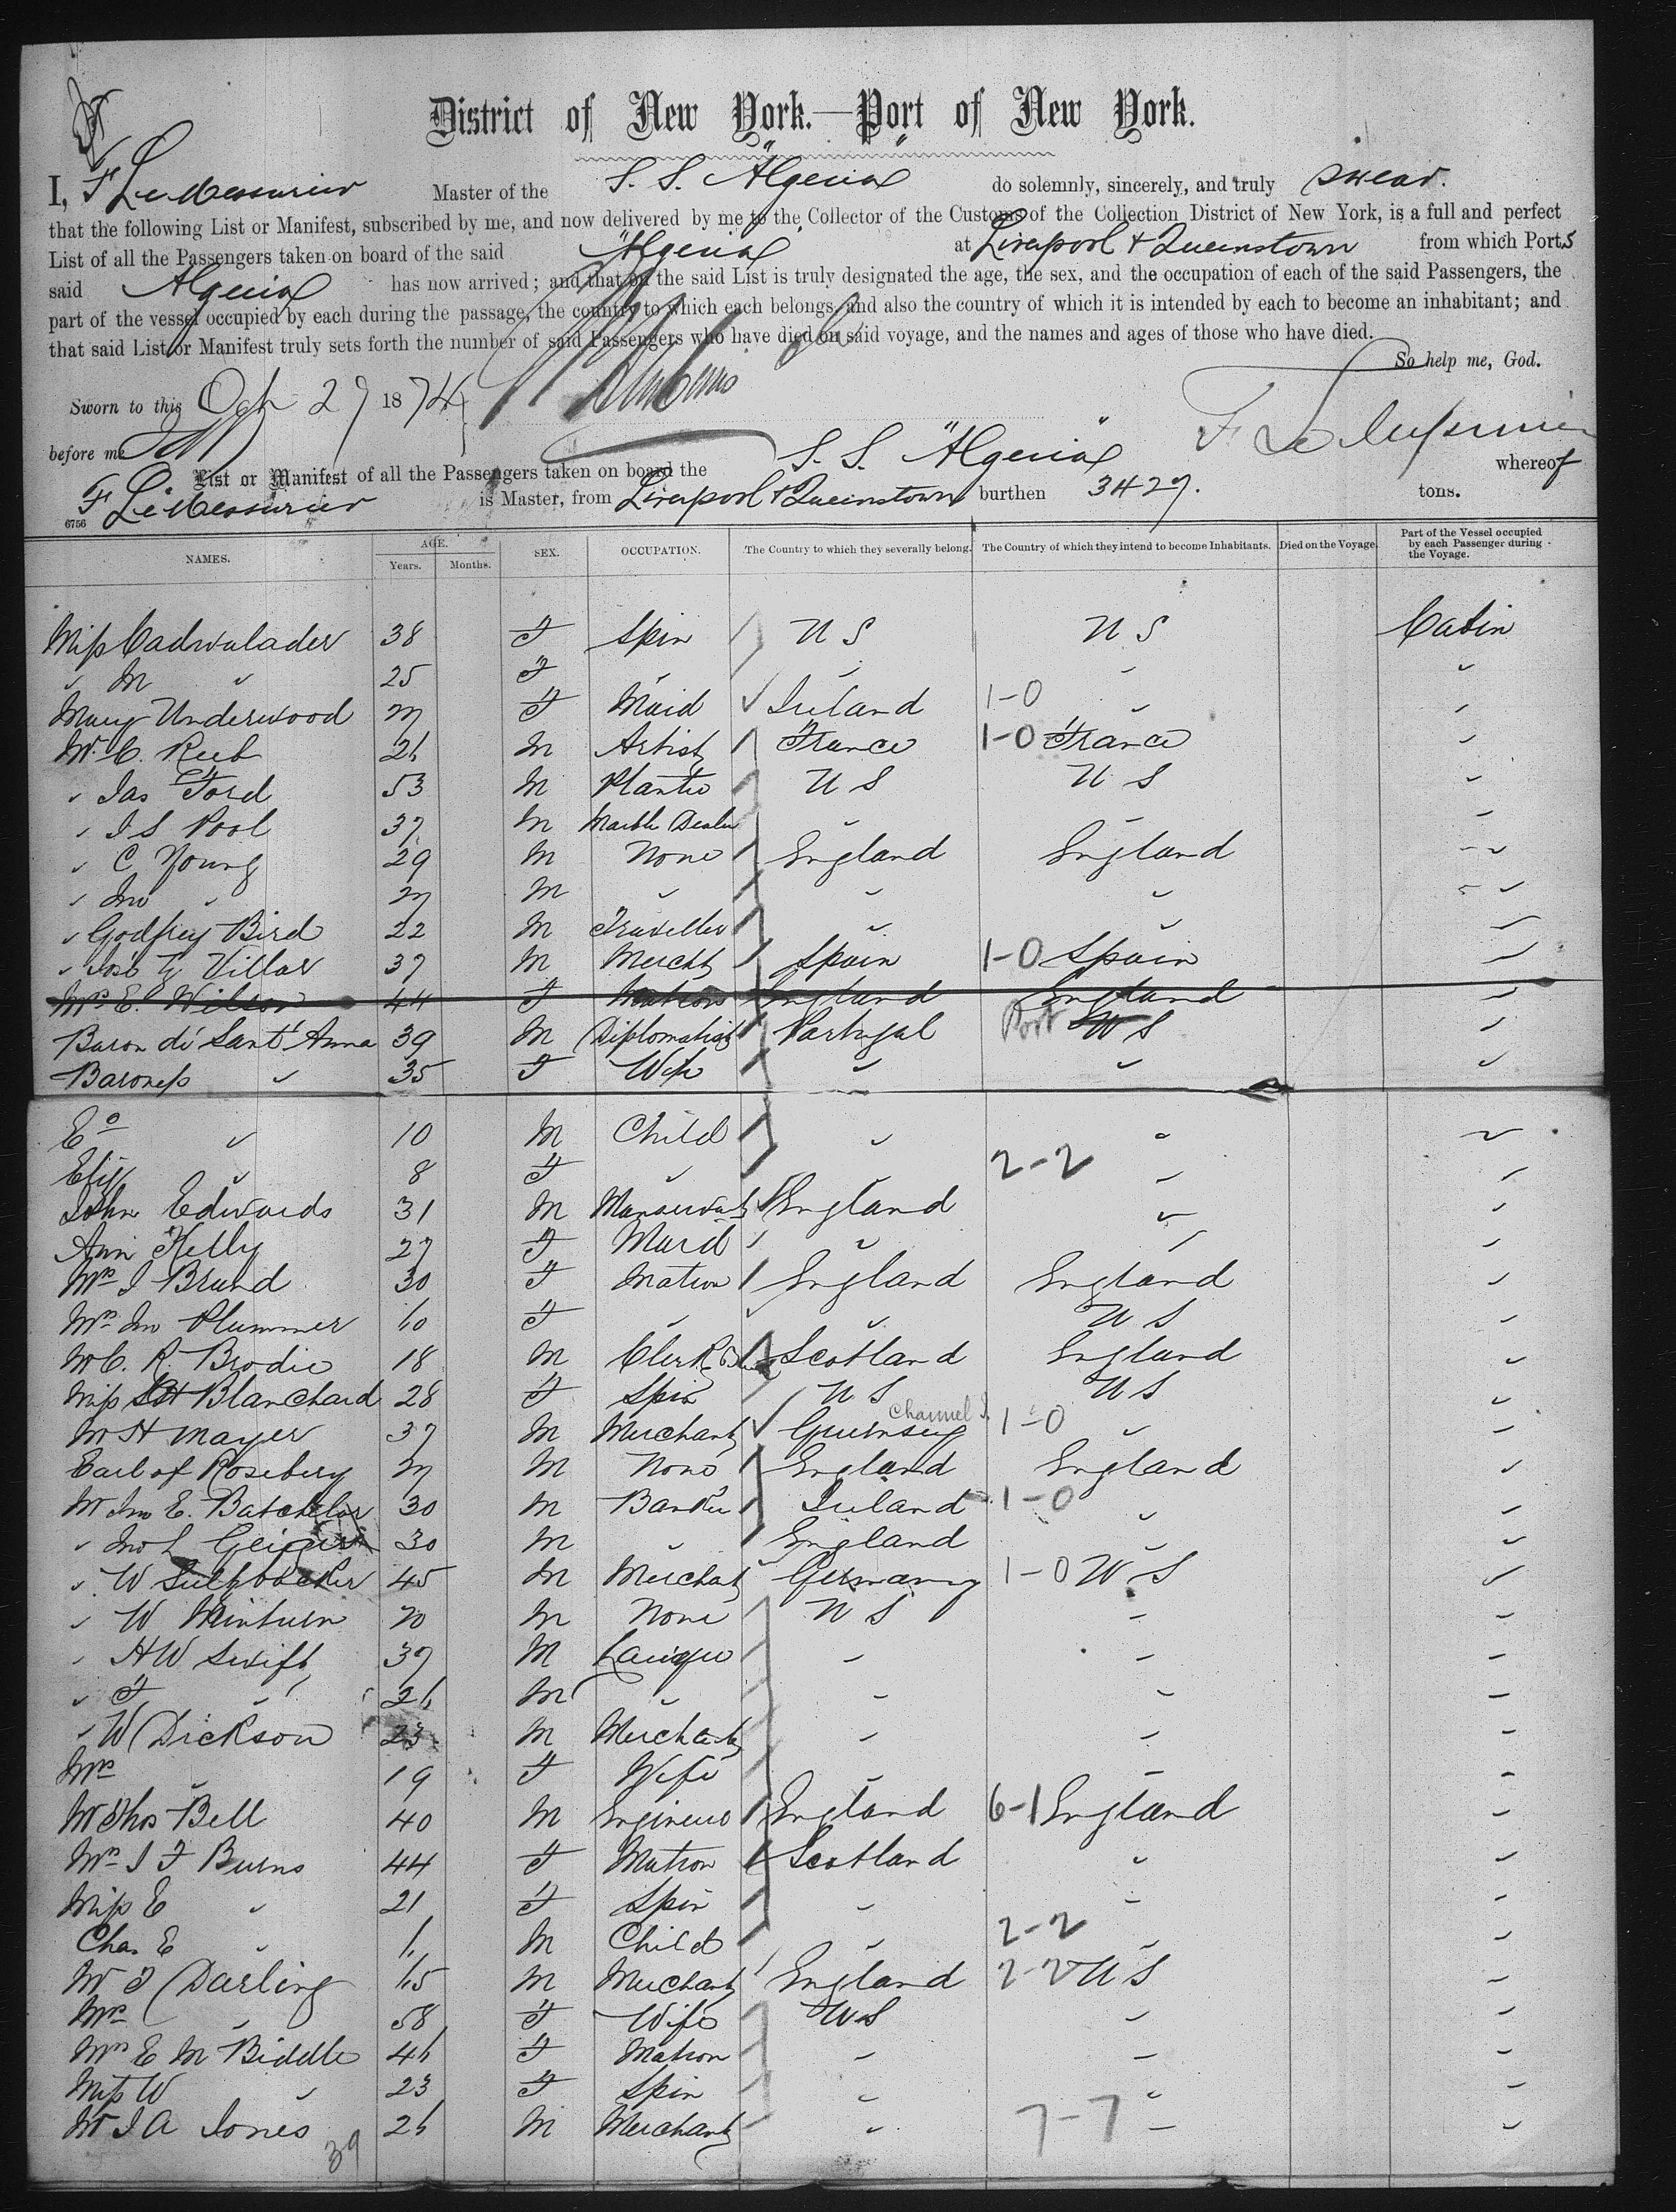 District of New York.—Port of New York.
I, F Le Messurier Master of the S. S. "Algeria" do solemnly, sincerely, and truly swear.
that the following List or Manifest, subscribed by me, and now delivered by me to the Collector of the Customs of the Collection District of New York, is a full and perfect
List of all the Passengers taken on board of the said "Algeria" at Liverpool & Queenstown from which Ports
said Algeria has now arrived; and that on the said List is truly designated the age, the sex, and the occupation of each of the said Passengers, the
part of the vessel occupied by each during the passage, the country to which each belongs, and also the country of which it is intended by each to become an inhabitant; and
that said List or Manifest truly sets forth the number of said Passengers who have died on said voyage, and the names and ages of those who have died.
So help me, God.
Sworn to this Oct 27 1874
before me
F Le Messurier
List or Manifest of all the Passengers taken on board the S. S. "Algeria" whereof
F Le Messurier is Master, from Liverpool & Queenstown burthen 3427. tons.
6756
NAMES. AGE. Years. Months. SEX. OCCUPATION. The Country to which they severally belong. The Country of which they intend to become Inhabitants. Died on the Voyage. Part of the Vessel occupied by each Passenger during the Voyage.
Miss Cadwalader 38 F Spin U S U S Cabin
" M " 25 F " " " "
Mary Underwood F Maid Ireland 1-0 " "
Mr C. Reeb 26 M Artist France 1-0 France "
" Jas Ford 53 M Planter U S U S "
" J S Pool 37 M Marble Dealer " " "
" C Young 29 M None England England "
" Jno " M " " " "
" Godfrey Bird 22 M Traveller " " "
" José G Villar 37 M Mercht Spain 1-0 Spain "
Mrs E. Wilson 44 F Matron England England "
Baron de Sant' Anna 39 M Diplomatist Portugal Port U S "
Baroness " 35 F Wife " " "
Eo " 10 M Child " " "
Eliz " 8 F " 2-2 " "
John Edwards 31 M Manservant England " "
Ann Kelly 27 F Maid " " "
Mrs J Brund 30 F Matron England England "
Mrs Jno Plummer 60 F " " U S "
Mr C. R. Brodie 18 M Clerk Scotland England "
Miss S H Blanchard 28 F Spin U S U S "
Mr H Mayer 37 M Merchant Guernsey Channel I. 1-0 " "
Earl of Rosebery M None England England "
Mr Jno E. Batchelor 30 M Banker Ireland 1-0 " "
" Jno L 30 M " England " "
" W Sulzbacker 45 M Merchat Germany 1-0 U S "
" W Minturn 20 M None U S " "
" H W Swift 37 M " " "
" F " 26 M " " " "
" W Dickson 23 M Merchant " " "
Mrs " 19 F Wife " " "
Mr Thos Bell 40 M Engineer England 6-1 England "
Mrs J F Burns 44 F Matron Scotland " "
Miss E " 21 F Spin " " "
Chas E " 1 M Child " 2-2 "
Mr J Darling 65 M Merchant England 2-2 U S "
Mrs " 58 F Wife U S " "
Mrs E M Biddle 46 F Matron " " "
Miss W " 23 F Spin " " "
Mr J A Jones 26 M Merchant " 7-7 " "
39